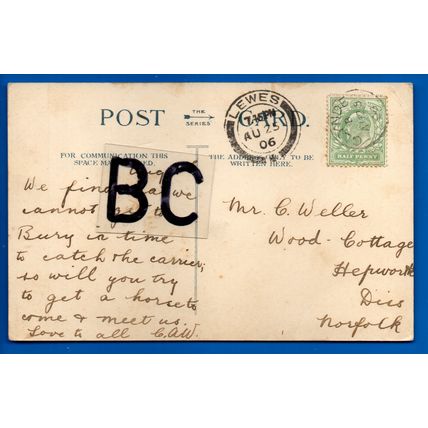 POST THE SERIES CARD.
LEWES
7.15PM
AU 25
06
HALF PENNY
FOR COMMUNICATION THIS
SPACE MAY
THE ADDRESS ONLY TO BE
WRITTEN HERE.
BC
We find we
cannot get to
Bury in time
to catch the carrier,
so will you try
to get a horse to
come & meet us.
Love to all C.A.W.
Mr. C. Weller
Wood-Cottage
Hepworth
Diss
Norfolk